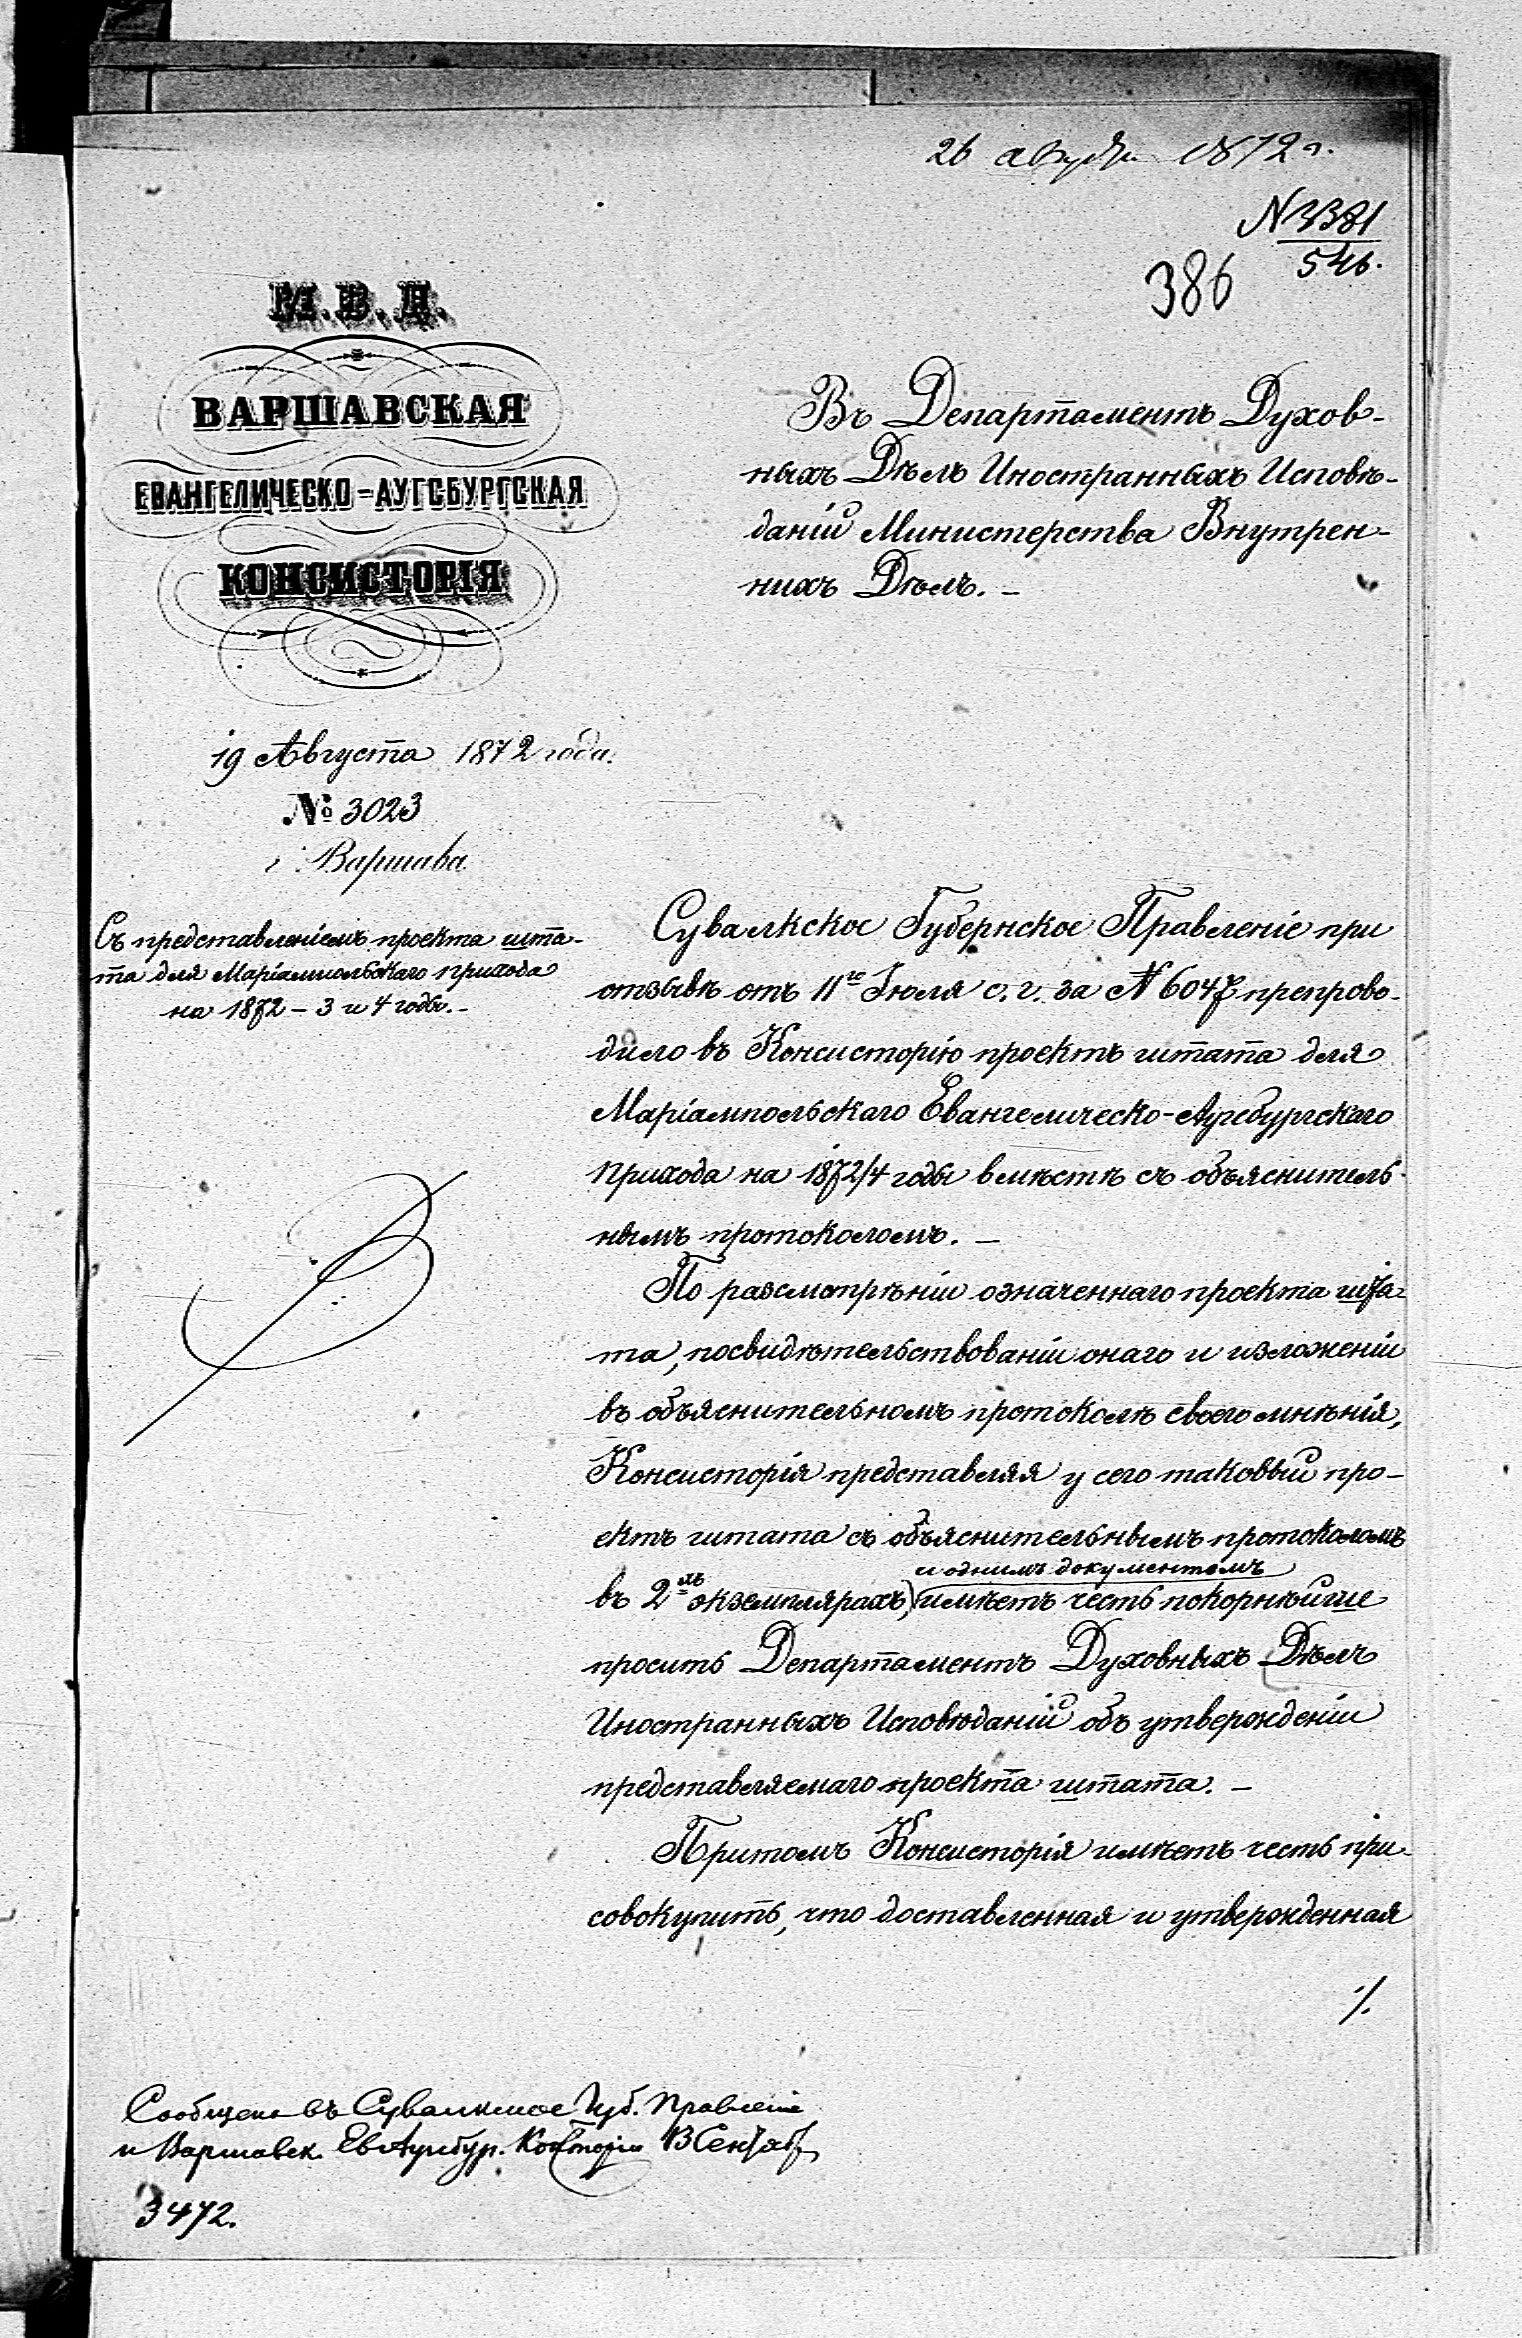 26 августа 1872 г.
N 3381
546.
386
М.В.Д.
ВАРШАВСКАЯ
ЕВАНГЕЛИЧЕСКО-АУГСБУРГСКАЯ
КОНСИСТОРІЯ
19 Августа 1872 года.
№ 3023
г. Варшава
Съ представленіемъ проекта шта-
та для Маріампольскаго прихода
на 1872 – 3 и 4 годы. –
Въ Департаментъ Духов-
ныхъ Дѣлъ Иностранныхъ Исповѣ-
даній Министерства Внутрен-
нихъ Дѣлъ. –
Сувалкское Губернское Правленіе при
отзывѣ отъ 11го Іюля с. г. за № 6047 препрово-
дило въ Консисторію проектъ штата для
Маріампольскаго Евангелическо-Аугсбургскаго
прихода на 1872/4 годы вмѣстѣ съ объяснитель-
нымъ протоколомъ. –
По разсмотрѣніи означеннаго проекта шта-
та, посвидѣтельствованіи онаго и изложеніи
въ объяснительномъ протоколѣ своего мнѣнія,
Консисторія представляя у сего таковый про-
ектъ штата съ объяснительнымъ протоколомъ
и однимъ документомъ
въ 2хъ экземплярахъ, имѣетъ честь покорнѣйше
просить Департаментъ Духовныхъ Дѣлъ
Иностранныхъ Исповѣданій объ утвержденіи
представляемаго проекта штата. –
Притомъ Консисторія имѣетъ честь при-
совокупить, что доставленная и утвержденная
./.
Сообщено въ Сувалкское Губ. Правленіе
и Варшавск. Ев Аугсбур. Консторію 13 Сентяб
3472.